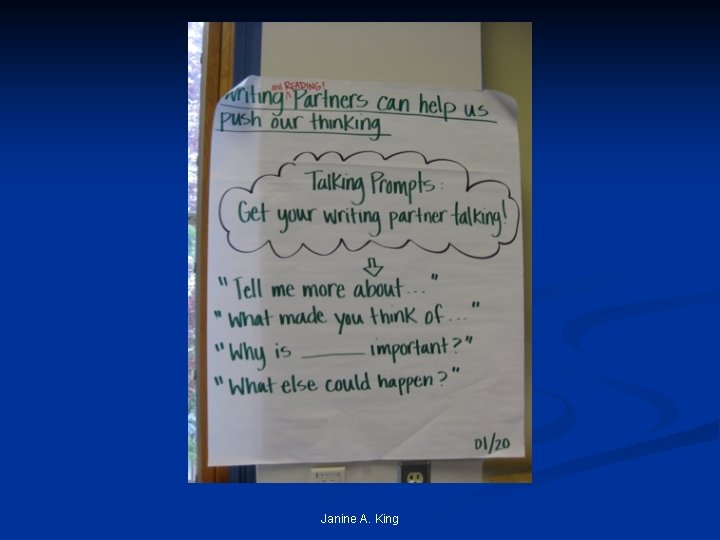 and READING!
Writing ^ Partners can help us
push our thinking
Talking Prompts:
Get your writing partner talking!
"Tell me more about..."
"What made you think of..."
"Why is ______ important?"
"What else could happen?"
01/20
Janine A. King